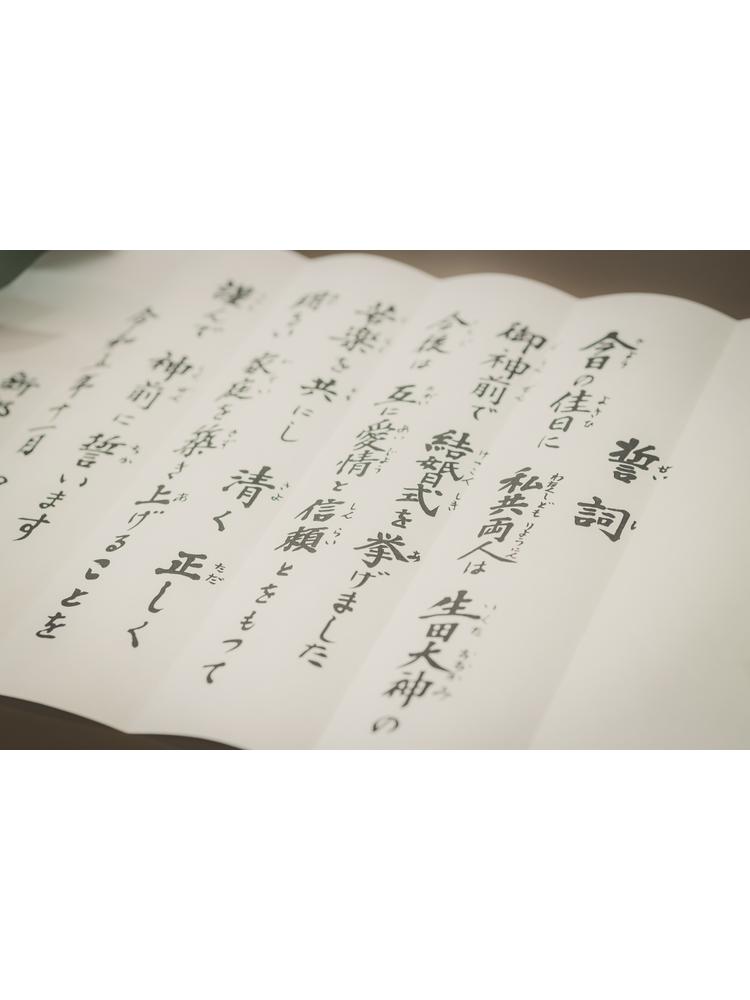 誓詞
今日の佳日に 私共両人は 生田大神の
御神前で 結婚式を挙げました
今後は 互に愛情と信頼とをもって
苦楽を共にし 清く 正しく
明るい 家庭を築き上げることを
謹んで 神前に誓います
令和五年十一月
新郎